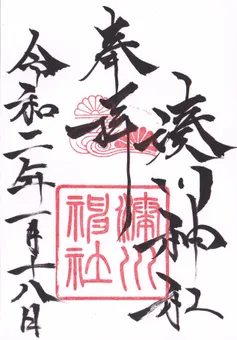 奉拝
湊川神社
湊川神社
令和二年一月十八日